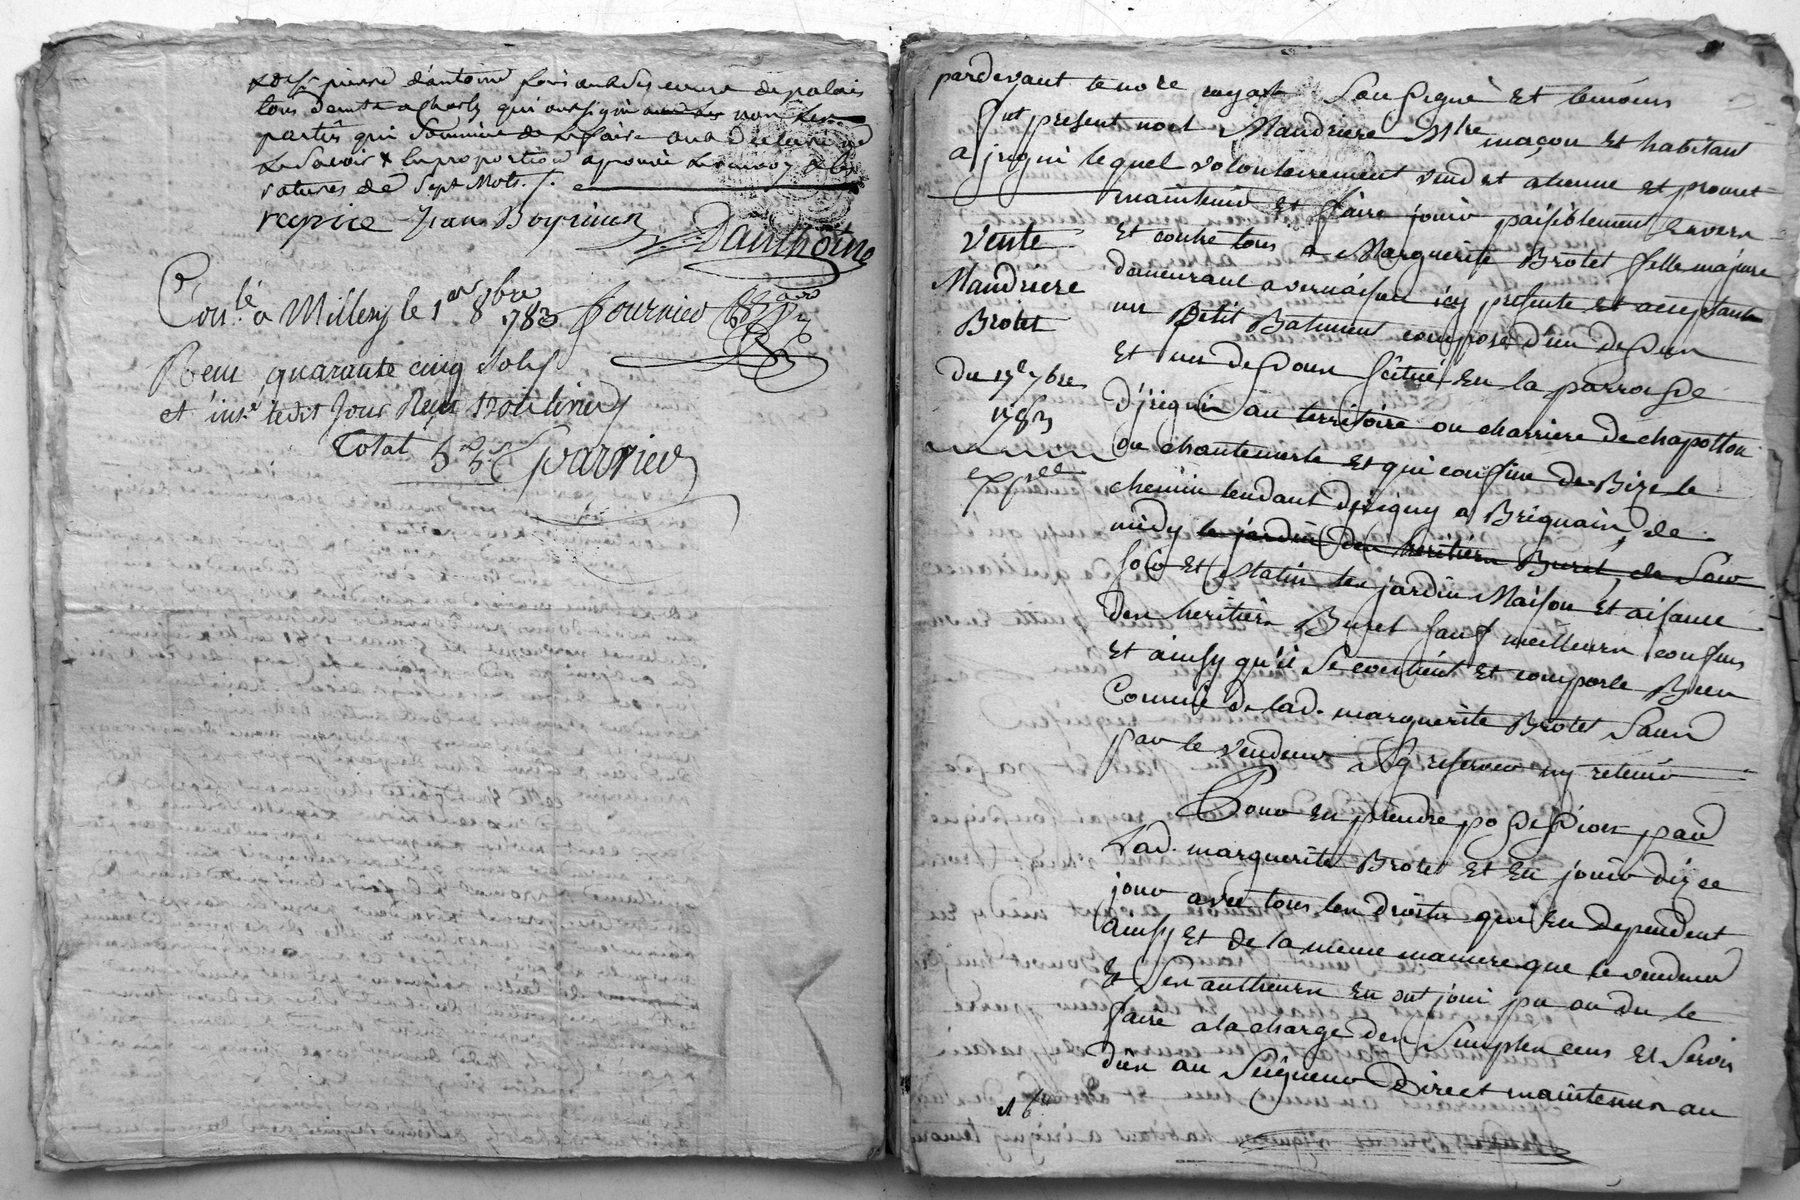 & de Sr pierre d'antoine fois aussi es cours de palais
tous deux a charly qui ont signé non les
parties qui Sommées de le faire ont declaré ne
le Savoir & la proportion aprouvé le renvoy & les
ratures de Sept Mots ./.
repice Jean Boyriven Danthoine
Con.lé a Millery le 1er 8bre 1783 fournier
Recu quarante cinq sols
et ins.é ledit Jour Reçu trois livres
Total 5 5 Sparrier
pardevant le no.re royal Sousigné Et temoins
fut present noel Mandriere M.tre maçon Et habitant
a jrigni lequel volontairement vend et alienne et promet
maintenir Et faire jouir paisiblement Envers
Et contre tous a Marguerite Brotet fille majeure
demeurant a vernaison icy presente et acceptante
un Petit Batiment composé d'un dessus
Et un dessous Scitué En la parroisse
D'jrigni au territoire ou charriere de chapotton
ou chantemerle Et qui confine de Bize le
chemin tendant d'jrigny a Brignais, de
midy le jardin des heritiers Buret, de Soir
Soir Et Matin les jardin Maison Et aisance
des heritiers Buret Sauf meilleurs confins
Et ainsy qu'il Se contient Et comporte Bien
Connu de lad. marguerite Brotet Sans
par le vendeur S'y reserver ny retenir
Pour En prendre possession par
Lad. marguerite Brotet Et En jouir dez ce
jour avec tous les droits qui En dependent
ainsy Et de la meme maniere que le vendeur
& Ses autheurs En ont joui pu ou du le
faire a la charge des Simples cens Et Servis
dus au Seigneur Direct maintenus au
vente
Mandriere
Brotet
Du 15e 7bre
1783